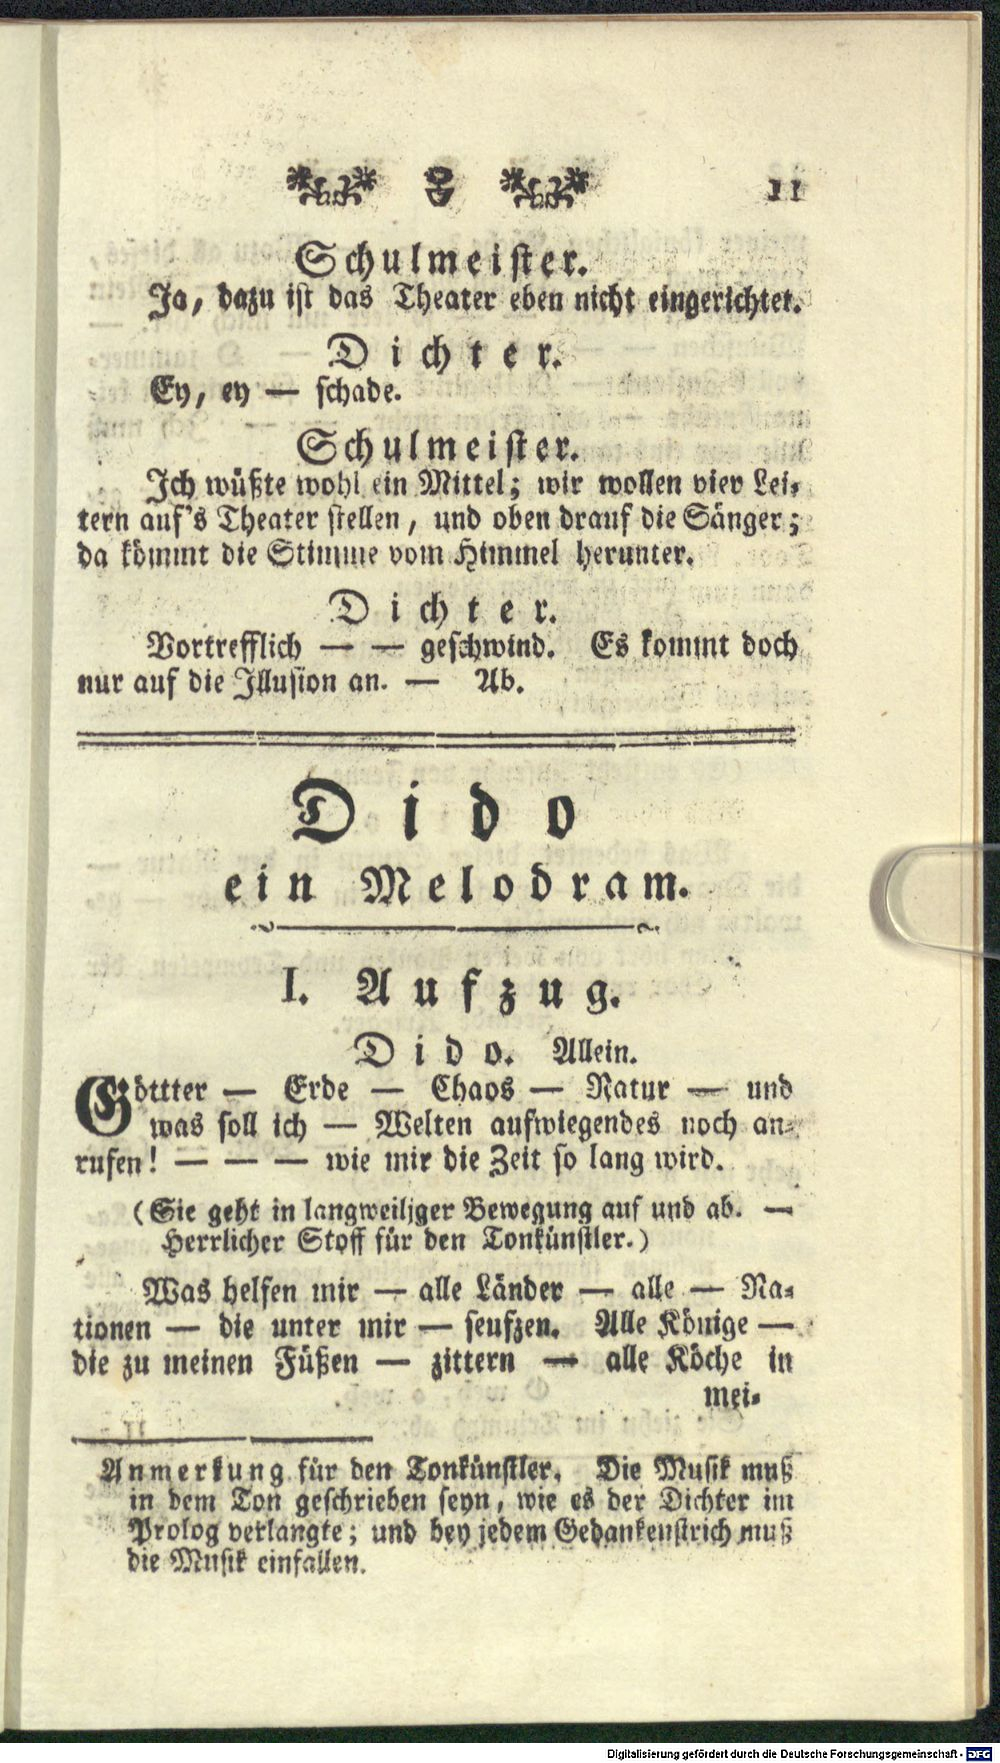 11
Schulmeister.
Ja, dazu ist das Theater eben nicht eingerichtet.
Dichter.
Ey, ey — schade.
Schulmeister.
Ich wüßte wohl ein Mittel; wir wollen vier Lei-
tern auf's Theater stellen, und oben drauf die Sänger;
da kömmt die Stimme vom Himmel herunter.
Dichter.
Vortrefflich — — geschwind. Es kommt doch
nur auf die Illusion an. — Ab.
Dido
ein Melodram.
I. Aufzug.
Dido. Allein.
Göttter — Erde — Chaos — Natur — und
was soll ich — Welten aufwiegendes noch an-
rufen! — — — wie mir die Zeit so lang wird.
(Sie geht in langweiliger Bewegung auf und ab. —
Herrlicher Stoff für den Tonkünstler.)
Was helfen mir — alle Länder — alle — Na-
tionen — die unter mir — seufzen. Alle Könige —
die zu meinen Füßen — zittern — alle Köche in
mei-
Anmerkung für den Tonkünstler. Die Musik muß
in dem Ton geschrieben seyn, wie es der Dichter im
Prolog verlangte; und bey jedem Gedankenstrich muß
die Musik einfallen.
Digitalisierung gefördert durch die Deutsche Forschungsgemeinschaft - DFG